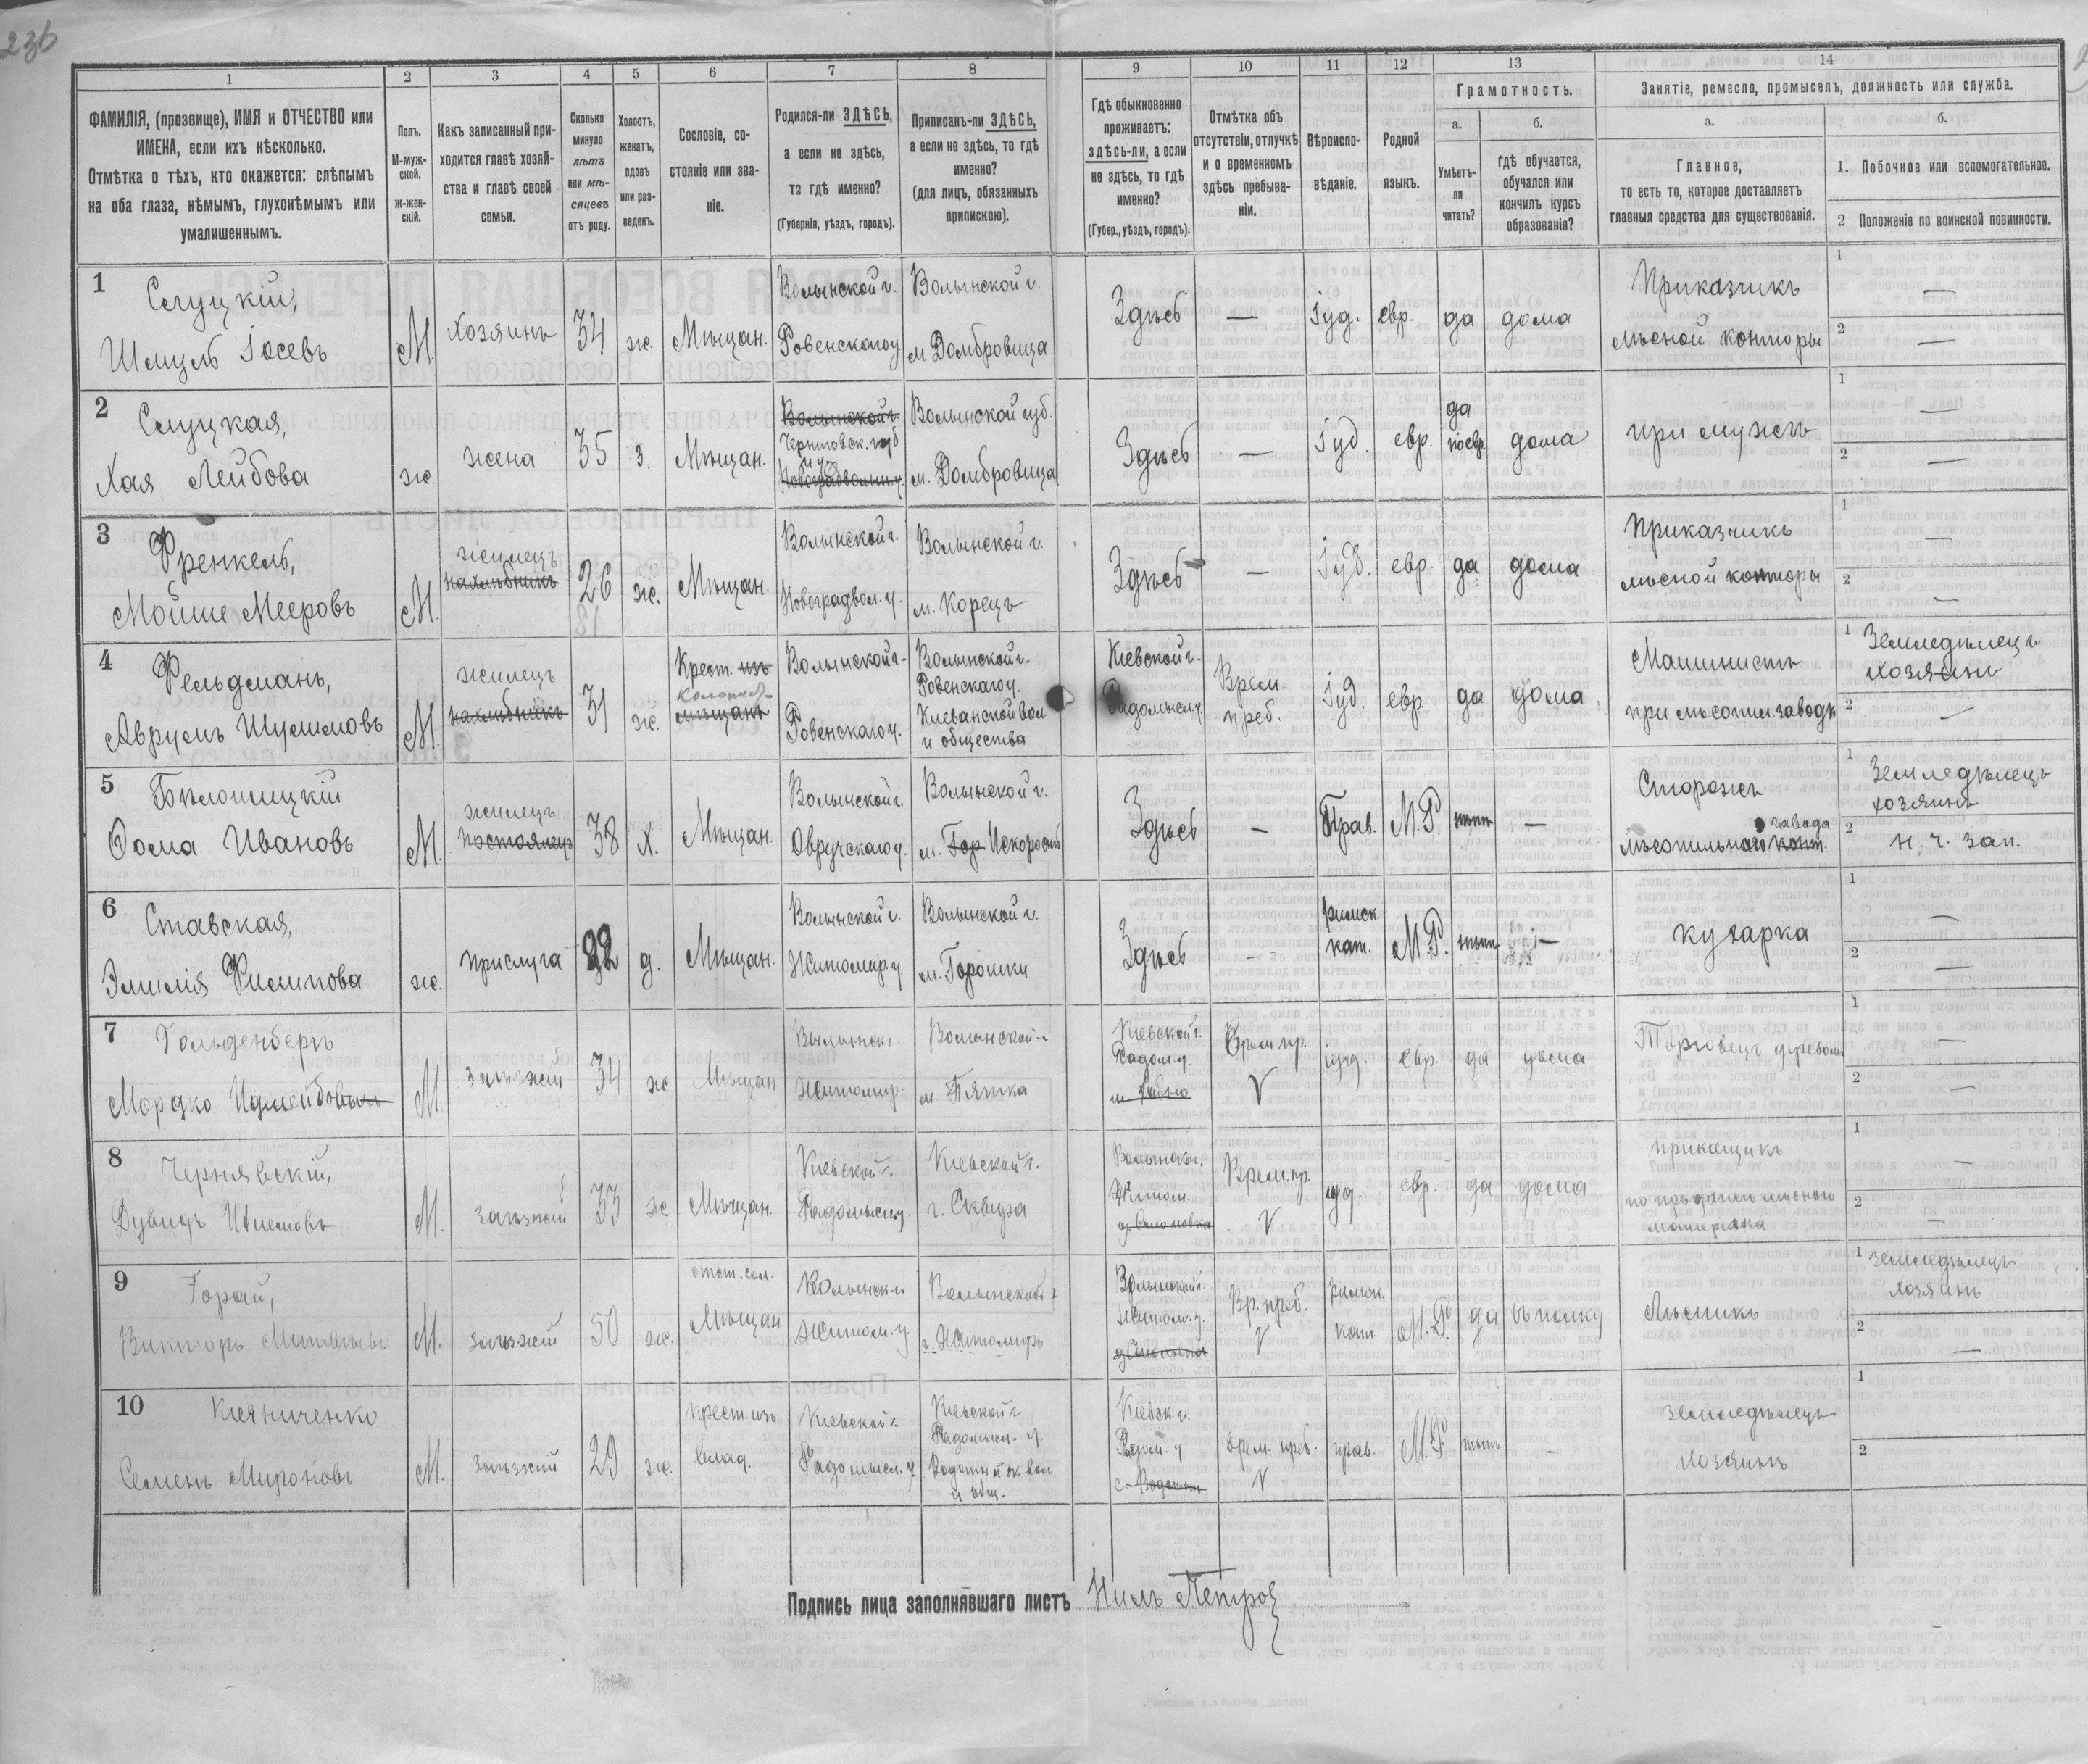 236
1 2 3 4 5 6 7 8 9 10 11 12 13 14
ФАМИЛІЯ, (прозвище), ИМЯ и ОТЧЕСТВО или
ИМЕНА, если ихъ нѣсколько.
Отмѣтка о тѣхъ, кто окажется: слѣпымъ
на оба глаза, нѣмымъ, глухонѣмымъ или
умалишеннымъ.
Полъ.
М-муж-
ской.
ж-жен-
скій.
Какъ записанный при-
ходится главѣ хозяй-
ства и главѣ своей
семьи.
Сколько
минуло
лѣтъ
или мѣ-
сяцевъ
отъ роду.
Холостъ,
женатъ,
вдовъ
или раз-
веденъ.
Сословіе, со-
стояніе или зва-
ніе.
Родился-ли ЗДѢСЬ,
а если не здѣсь,
то гдѣ именно?
(Губернія, уѣздъ, городъ).
Приписанъ-ли ЗДѢСЬ,
а если не здѣсь, то гдѣ
именно?
(для лицъ, обязанныхъ
припискою).
Гдѣ обыкновенно
проживаетъ:
здѣсь-ли, а если
не здѣсь, то гдѣ
именно?
(Губер., уѣздъ, городъ).
Отмѣтка объ
отсутствіи, отлучкѣ
и о временномъ
здѣсь пребыва-
ніи.
Вѣроиспо-
вѣданіе.
Родной
языкъ.
Грамотность.
а.
Умѣетъ-
ли
читать?
б.
гдѣ обучается,
обучался или
кончилъ курсъ
образованія?
Занятіе, ремесло, промыселъ, должность или служба.
а.
Главное,
то есть то, которое доставляетъ
главныя средства для существованія.
б.
1. Побочное или вспомогательное.
2 Положеніе по воинской повинности.
1 Слуцкій,
Шмуль Іосевъ
М. Хозяинъ 34 ж. Мѣщан.
Волынской г.
Ровенскаго у
Волынской г.
м. Домбровица
Здѣсь — Іуд. евр. да дома
Приказчикъ
лѣсной конторы
1 —
2 —
2 Слуцкая,
Хая Лейбова
ж. жена 35 з. Мѣщан.
Волынской г.
Черниговск. губ
Волынской губ.
м. Домбровица
Здѣсь — Іуд. евр.
да
по евр.
дома
при мужѣ
1 —
2 —
3 Френкель,
Мойше Мееровъ
М.
жилецъ
нахлѣбникъ
26 ж. Мѣщан.
Волынской г.
Новоградвол. у.
Волынской г.
м. Корецъ
Здѣсь — Іуд. евр. да дома
Приказчикъ
лѣсной конторы
1 —
2 —
4 Фельдманъ,
Аврумъ Шулимовъ
М.
жилецъ
нахлѣбникъ
31 ж.
Крест. изъ
мѣщанъ
Волынской г.
Ровенскаго у.
Волынской г.
Ровенскаго у.
Клеванской вол
и общества
Кіевской г.
Радомысл у
Врем.
преб.
Іуд. евр. да дома
Машинистъ
при лѣсопил. заводѣ
1 Земледѣлецъ
хозяинъ
2 —
5 Бѣлошицкій
Ѳома Ивановъ
М.
жилецъ
постоялецъ
38 х. Мѣщан.
Волынской г.
Овручскаго у.
Волынской г.
м. Гор Искорость
Здѣсь — Прав. М. Р. нѣтъ —
Сторожъ
завода
лѣсопильнаго конт.
1 Земледѣлецъ
хозяинъ
2 н. ч. зап.
6 Ставская,
Эмилія Филипова
ж. прислуга 22 д. Мѣщан.
Волынской г.
Житомир. у.
Волынской г.
м. Горошки
Здѣсь —
римск.
кат.
М. Р. нѣтъ —
кухарка
1 —
2 —
7 Гольденберъ
Мордко
М. заѣзжій 34 ж Мѣщан
Волынск г.
Житомир.
Волынской г.
м. Пятка
Кіевской г.
Радом. у.
Врем пр.
V
іуд. евр. да дома
Торговецъ деревом
1 —
2 —
8 Чернявскій,
Дувидъ
М. заѣзжій 33 ж Мѣщан.
Кіевской г.
Радомысл у.
Кіевской г.
г. Сквира
Волынской г.
Житом.
Врем. пр.
V
іуд. евр. да дома
прикащикъ
по продажѣ лѣсного
материала
1 —
2 —
9 Горай,
Викторъ Матвѣевъ
М. заѣзжій 50 ж.
отст. сол.
Мѣщан.
Волынск г.
Житом. у.
Волынской г
г. Житомиръ
Волынской г.
Житом. у.
Вр. преб.
V
римск.
кат
М. Р. да въ полку
Лѣсникъ
1 земледѣлецъ
хозяинъ
2 —
10
Семенъ Мироновъ
М. заѣзжій 29 ж.
крест. изъ
влад.
Кіевской г.
Радомысл. у
Кіевской г.
Радомысл. у.
вол
и общ.
Кіевск г.
Радом. у
врем. преб.
V
прав. М. Р. нѣтъ —
земледѣлецъ
хозяинъ
1
2
Подпись лица заполнявшаго листъ Нилъ Петров